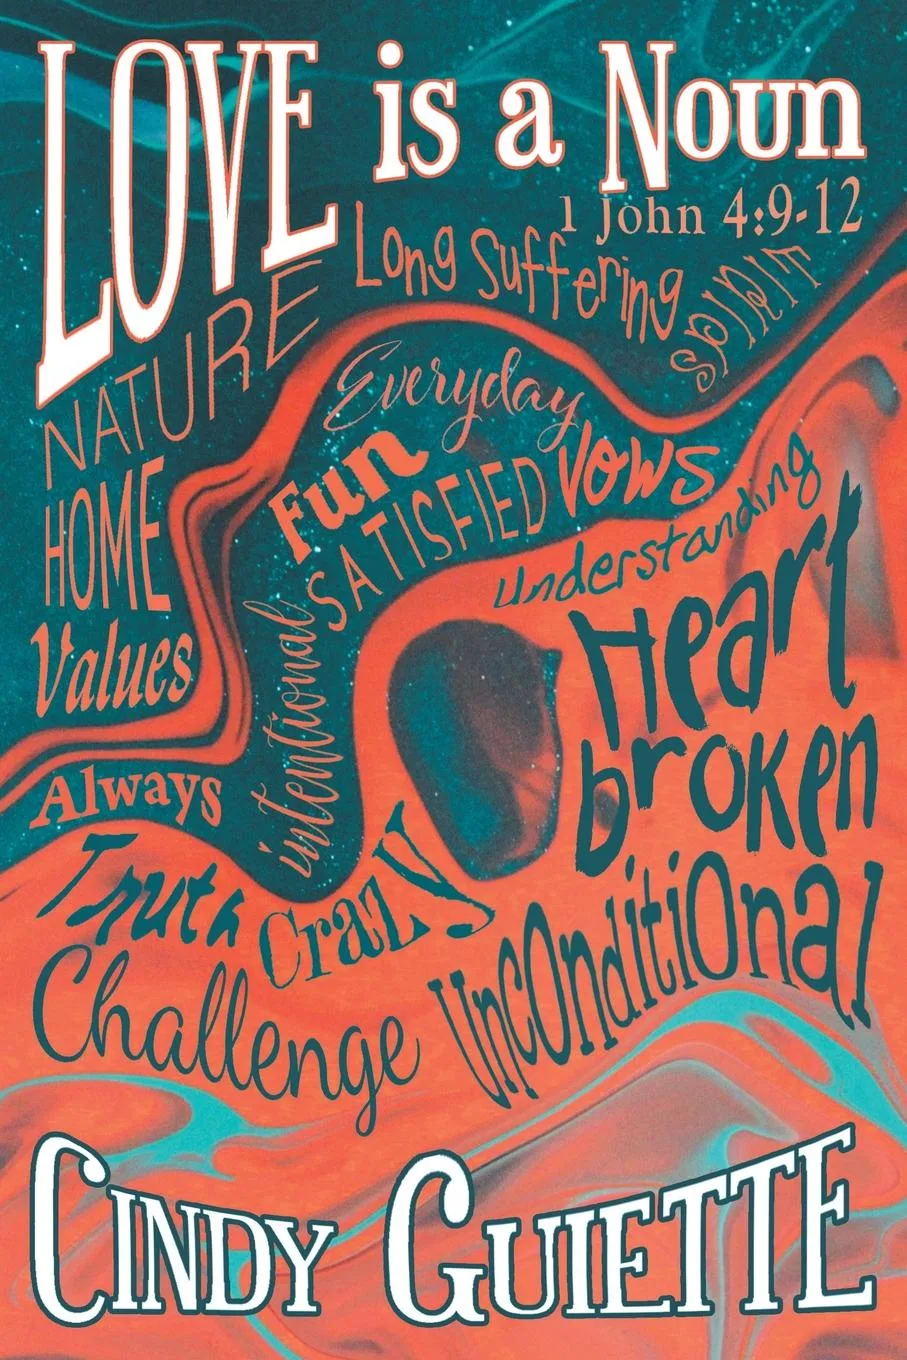 LOVE is a Noun
1 John 4:9-12
Long Suffering
SPIRIT
NATURE
Everyday
Fun
SATISFIED
Vows
HOME
understanding
Values
intentional
Heart
broken
Always
Truth
Crazy
Unconditional
Challenge
CINDY GUIETTE